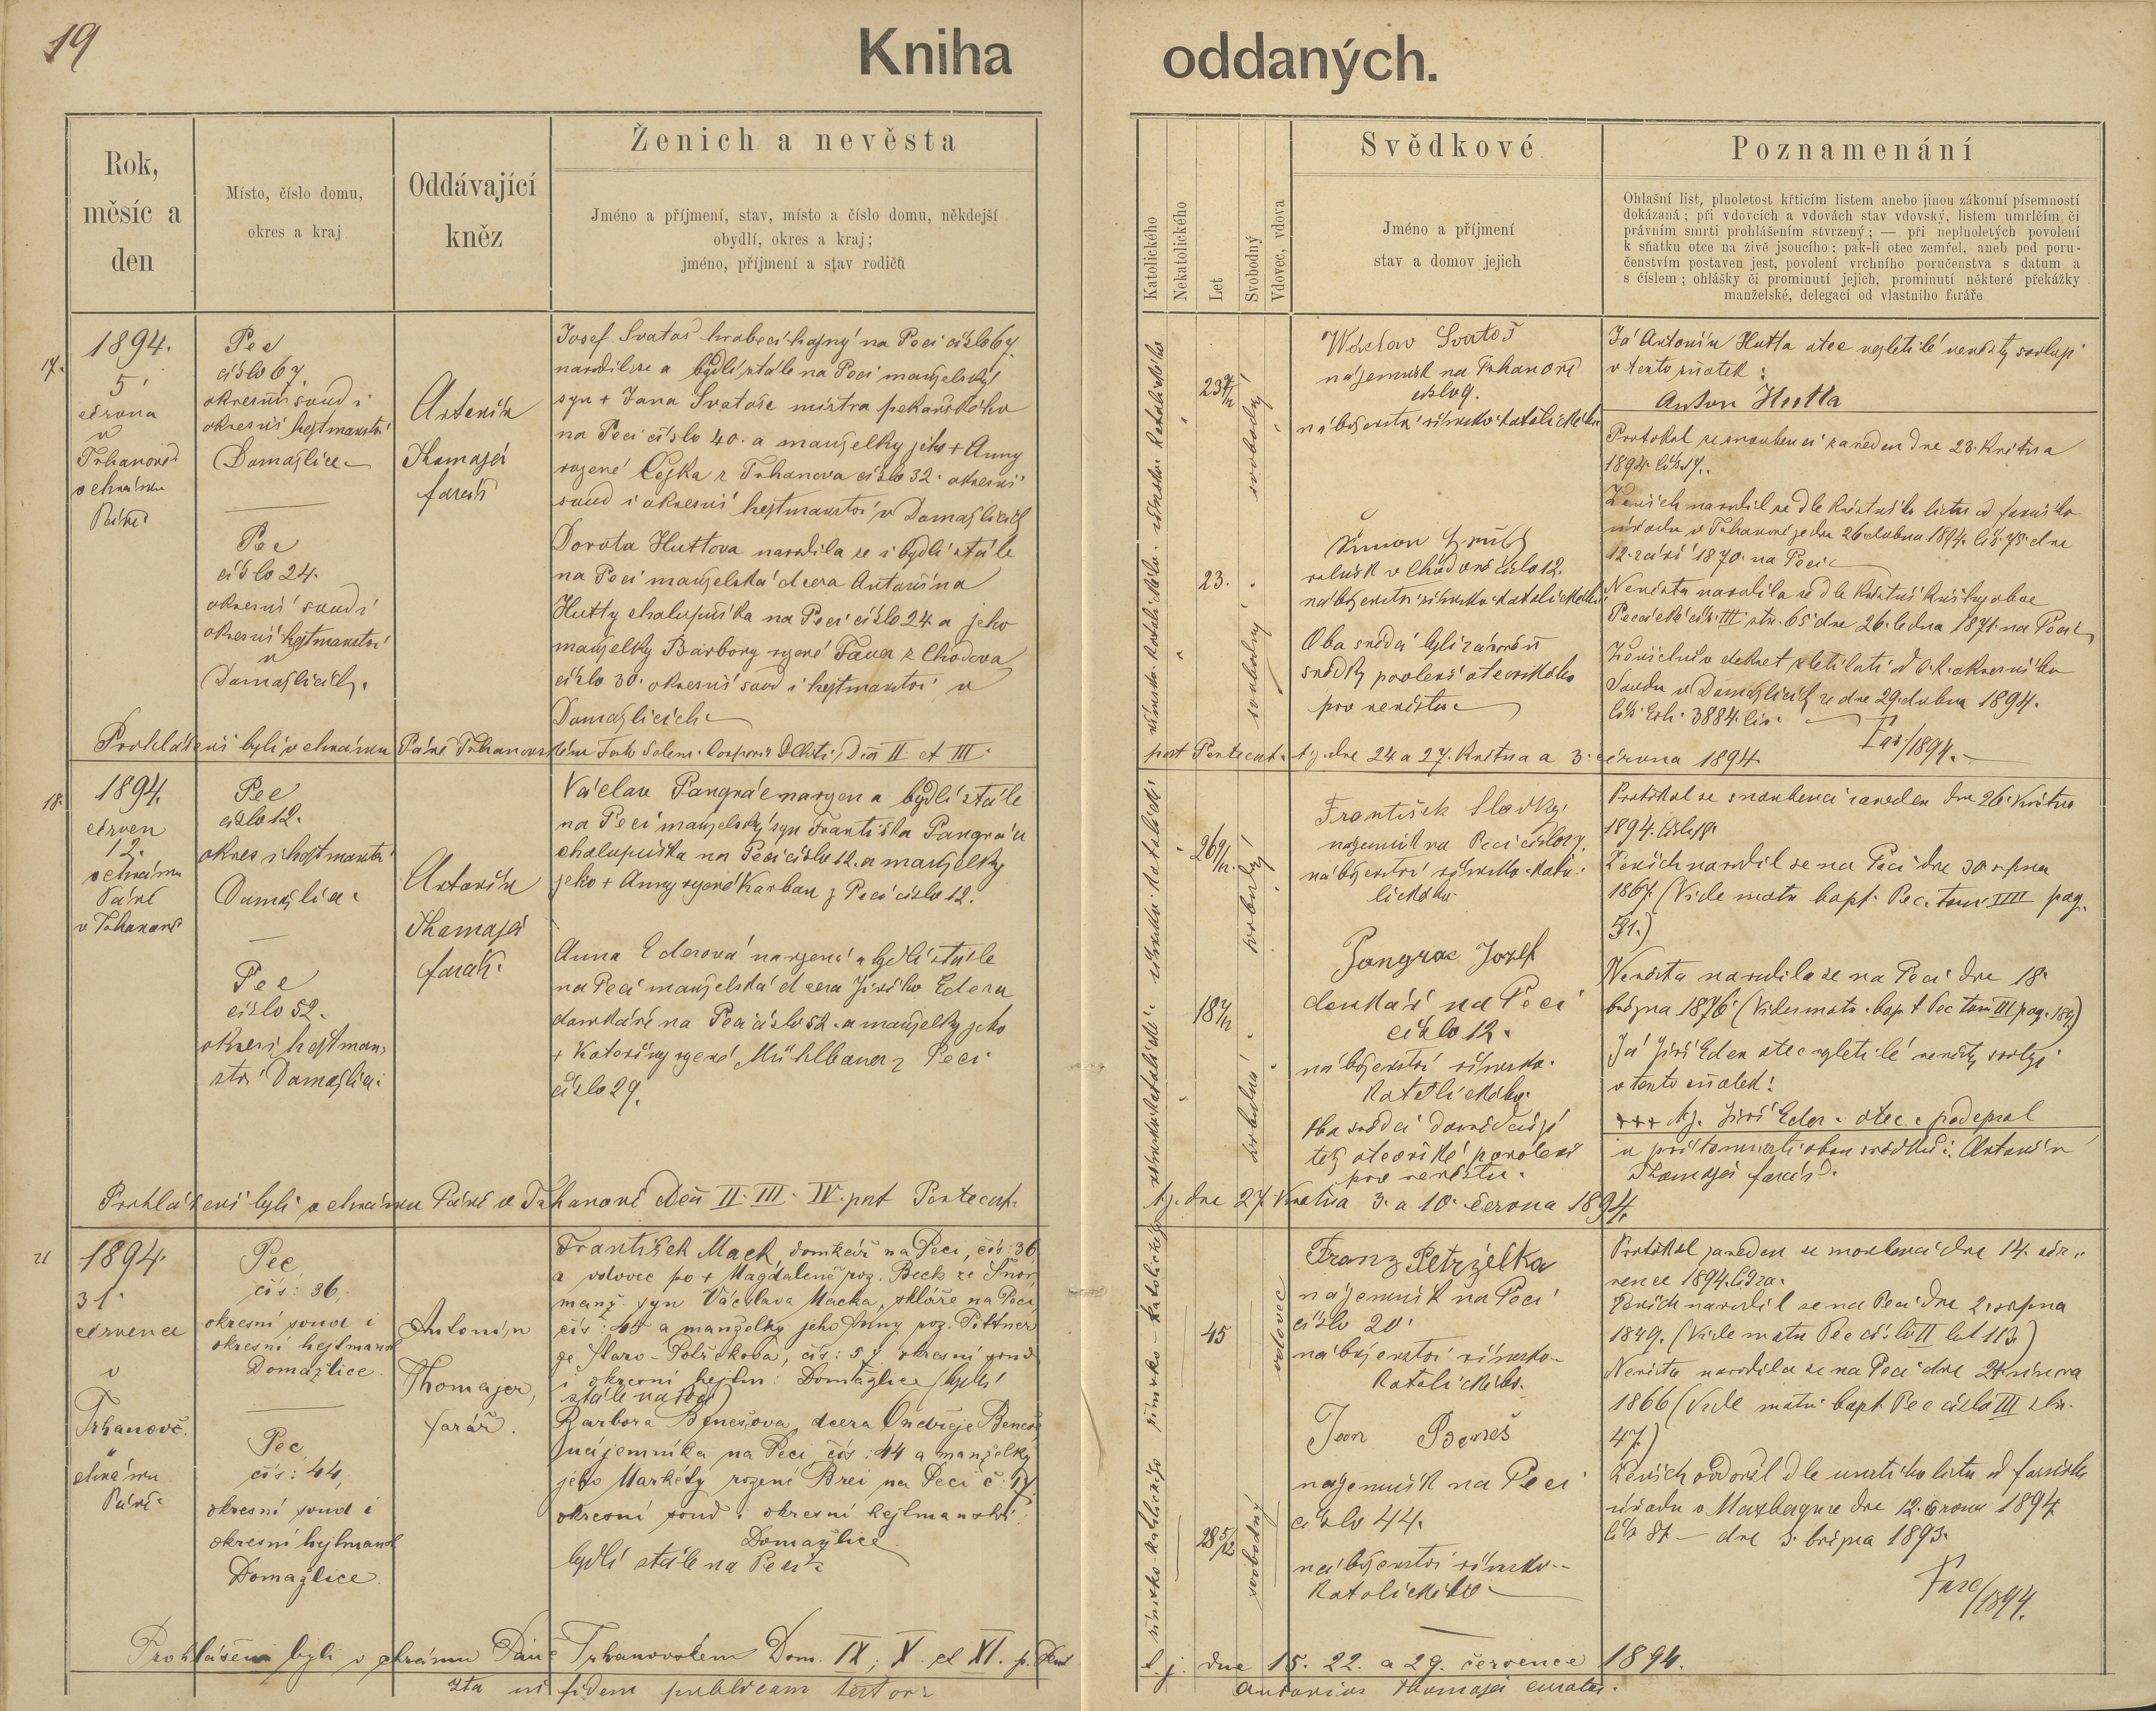 19
Kniha oddaných.
Rok,
měsíc a
den
Místo, číslo domu,
okres a kraj
Oddávající
kněz
Ženich a nevěsta
Jméno a příjmení, stav, místo a číslo domu, někdejší
obydlí, okres a kraj;
jméno, příjmení a stav rodičů
Katolického
Nekatolického
Let
Svobodný
Vdovec, vdova
Svědkové
Jméno a příjmení
stav a domov jejich
Poznamenání
Ohlašní list, plnoletost křticím listem anebo jinou zákonní písemností
dokázaná; při vdovcích a vdovách stav vdovský, listem umrlčím, či
právním smrti prohlášením stvrzený; — při neplnoletých povolení
k sňatku otce na živě jsoucího; pak-li otec zemřel, aneb pod poru-
čenstvím postaven jest, povolení vrchního poručenstva s datum a
s číslem; ohlášky či prominutí jejich, prominutí některé překážky
manželské, delegací od vlastního faráře
17.
1894.
5.
června
v
Trhanově
v chrámu
Páně
Pec
číslo 67.
okresní soud i
okresní hejtmanství
Domažlice
Pec
číslo 24.
okresní soud i
okresní hejtmanství
v
Domažlicích.
Antonín
Thomajer
farář
Josef Svatoš hraběcí hajný na Peci číslo 67.
narodil se a bydlí stále na Peci manželský
syn + Jana Svatoše mistra pekařského
na Peci číslo 40. a manželky jeho + Anny
rozené Cejka z Trhanova číslo 32. okresní
soud i okresní hejtmanství v Domažlicích
Dorota Huttova narodila se i bydlí stále
na Peci manželská dcera Antonína
Hutty chalupníka na Peci číslo 24 a jeho
manželky Barbory rozené Fauer z Chodova
číslo 30. okresní soud i hejtmanství v
Domažlicích
23 9/12
svobodný
23.
svobodný
Wáclav Svatoš
nájemník na Trhanově
číslo 9.
náboženství římsko-katolického
Šimon
rolník v Chodově číslo 12.
náboženství římsko-katolického
Oba svědci byli zároveň
svědky povolení otcovského
pro nevěstu
Já Antonín Hutta otec nezletilé nevěsty svoluji
v tento sňatek:
Anton Hutta
Protokol se snoubenci zaveden dne 23. Května
1894. čís. 17.
Ženich narodil se dle křestního listu od farního
úřadu v Trhanově ze dne 26. dubna 1894. čís. 75. dne
12. září 1870. na Peci
Nevěsta narodila se dle křestní knihy obce
Pecské čís. III str. 65 dne 26. ledna 1871. na Peci
Ženichův dekret zletilosti od c.k. okresního
Soudu v Domažlicích ze dne 29. dubna 1894.
čís. Exh. 3884. civ.
Prohlášeni byli v chrámu Páně Trhanovském Festo Solem. Corporis Christi, Dom II et III.
post Pentecost. t.j. dne 24 a 27. Května a 3. června 1894.
18.
1894.
červen
12.
v chrámu
Páně
v Trhanově
Pec
číslo 12.
okres i hejtmanství
Domažlice
Pec
číslo 52.
okres i hejtman-
ství Domažlice
Antonín
Thomajer
farář.
Václav Pangrác narozen a bydlí stále
na Peci manželský syn Františka Pangráce
chalupníka na Peci číslo 12. a manželky
jeho + Anny rozené Karban z Peci číslo 12.
Anna Ederová narozená a bydlí stále
na Peci manželská dcera Jiřího Edera
domkáře na Peci číslo 52. a manželky jeho
+ Kateřiny rozené Mühlbauer z Peci
číslo 29.
26 9/12
svobodný
18 7/12
svobodná
František Sladký
nájemník na Peci číslo
náboženství římsko-kato-
lického
Pangrac Jozef
domkář na Peci
číslo 12.
náboženství římsko-
katolického.
Oba svědci dosvědčují
též otcovské povolení
pro nevěstu.
Protokol se snoubenci zaveden dne 26. Května
1894. číslo 18.
Ženich narodil se na Peci dne 30 srpna
1867. (Vide matr bapt. Pec. tom. IIII pag.
31.)
Nevěsta narodila se na Peci dne 18.
března 1876 (Vide matr. bapt Pec tom III pag. 189)
Já Jiří Eder otec nezletilé nevěsty svoluji
v tento sňatek!
+++ tj. Jiří Eder otec podepsal
u přítomnosti obou svědků: Antonín
Thomajer farář.
Prohlášeni byli v chrámu Páně v Trhanově Dom II. III. IV. post Pentecost.
tj. dne 27. Května 3. a 10. června 1894.
21
1894.
31.
července
v
Trhanově.
v
chrámu
Páně
Pec,
čís: 36,
okresní soud i
okresní hejtmanst
Domažlice.
Pec,
čís: 44,
okresní soud i
okresní hejtmanst
Domažlice.
Antonín
Thomajer,
farář.
František Mack, domkář na Peci, čís: 36
a vdovec po + Magdaleně roz. Beck ze Šnor,
manž. syn Václava Macka, skláře na Peci,
čís: 45 a manželky jeho Anny roz. Pittner
ze Staro-Postřekova, čís: 57 okresní soud
i okresní hejtm: Domažlice (bydlí
stále na Peci)
Barbora Benešova, dcera Ondřeje Beneše
nájemníka na Peci čís: 44 a manželky
jeho Markéty rozené Brei na Peci č: 17.
okresní soud i okresní hejtmanství:
Domažlice
bydlí stále na Peci
45
vdovec
28 5/12
svobodný
Franz Petrželka
nájemník na Peci
číslo 20.
náboženství římsko-
katolického.
Jan Beneš
nájemník na Peci
číslo 44.
náboženství římsko-
katolického
Protokol zaveden se snoubenci dne 14. čer-
vence 1894.
Ženich narodil se na Peci dne 2. srpna
1849. (Vide matr Pec číslo II fol 113)
Nevěsta narodila se na Peci dne 24 února
1866 (Vide matr. bapt. Pec číslo III str.
47)
Ženich ovdověl dle úmrtního listu od farního
úřadu v dne 12. června 1894
čís 87 — dne 3. března 1893.
Prohlášeni byli v chrámu Páně Trhanovském Dom. IX, X. et XI. p. Pent
t. j. dne 15. 22. a 29. července 1894.
Ita in fidem publicam testor:
Antonius Thomajer curatus.